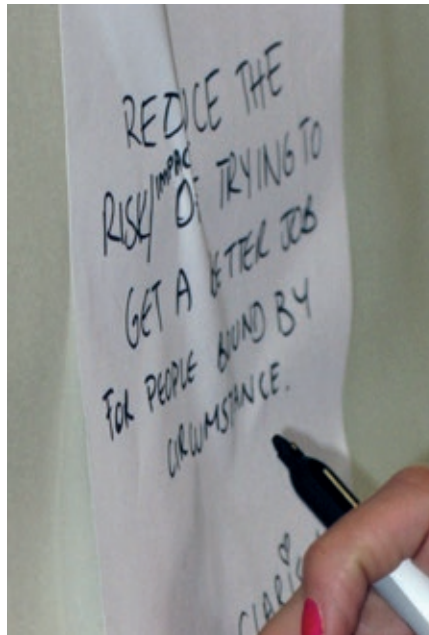 REDUCE THE
RISK/IMPACT OF TRYING TO
GET A BETTER JOB
FOR PEOPLE BOUND BY
CIRCUMSTANCE.